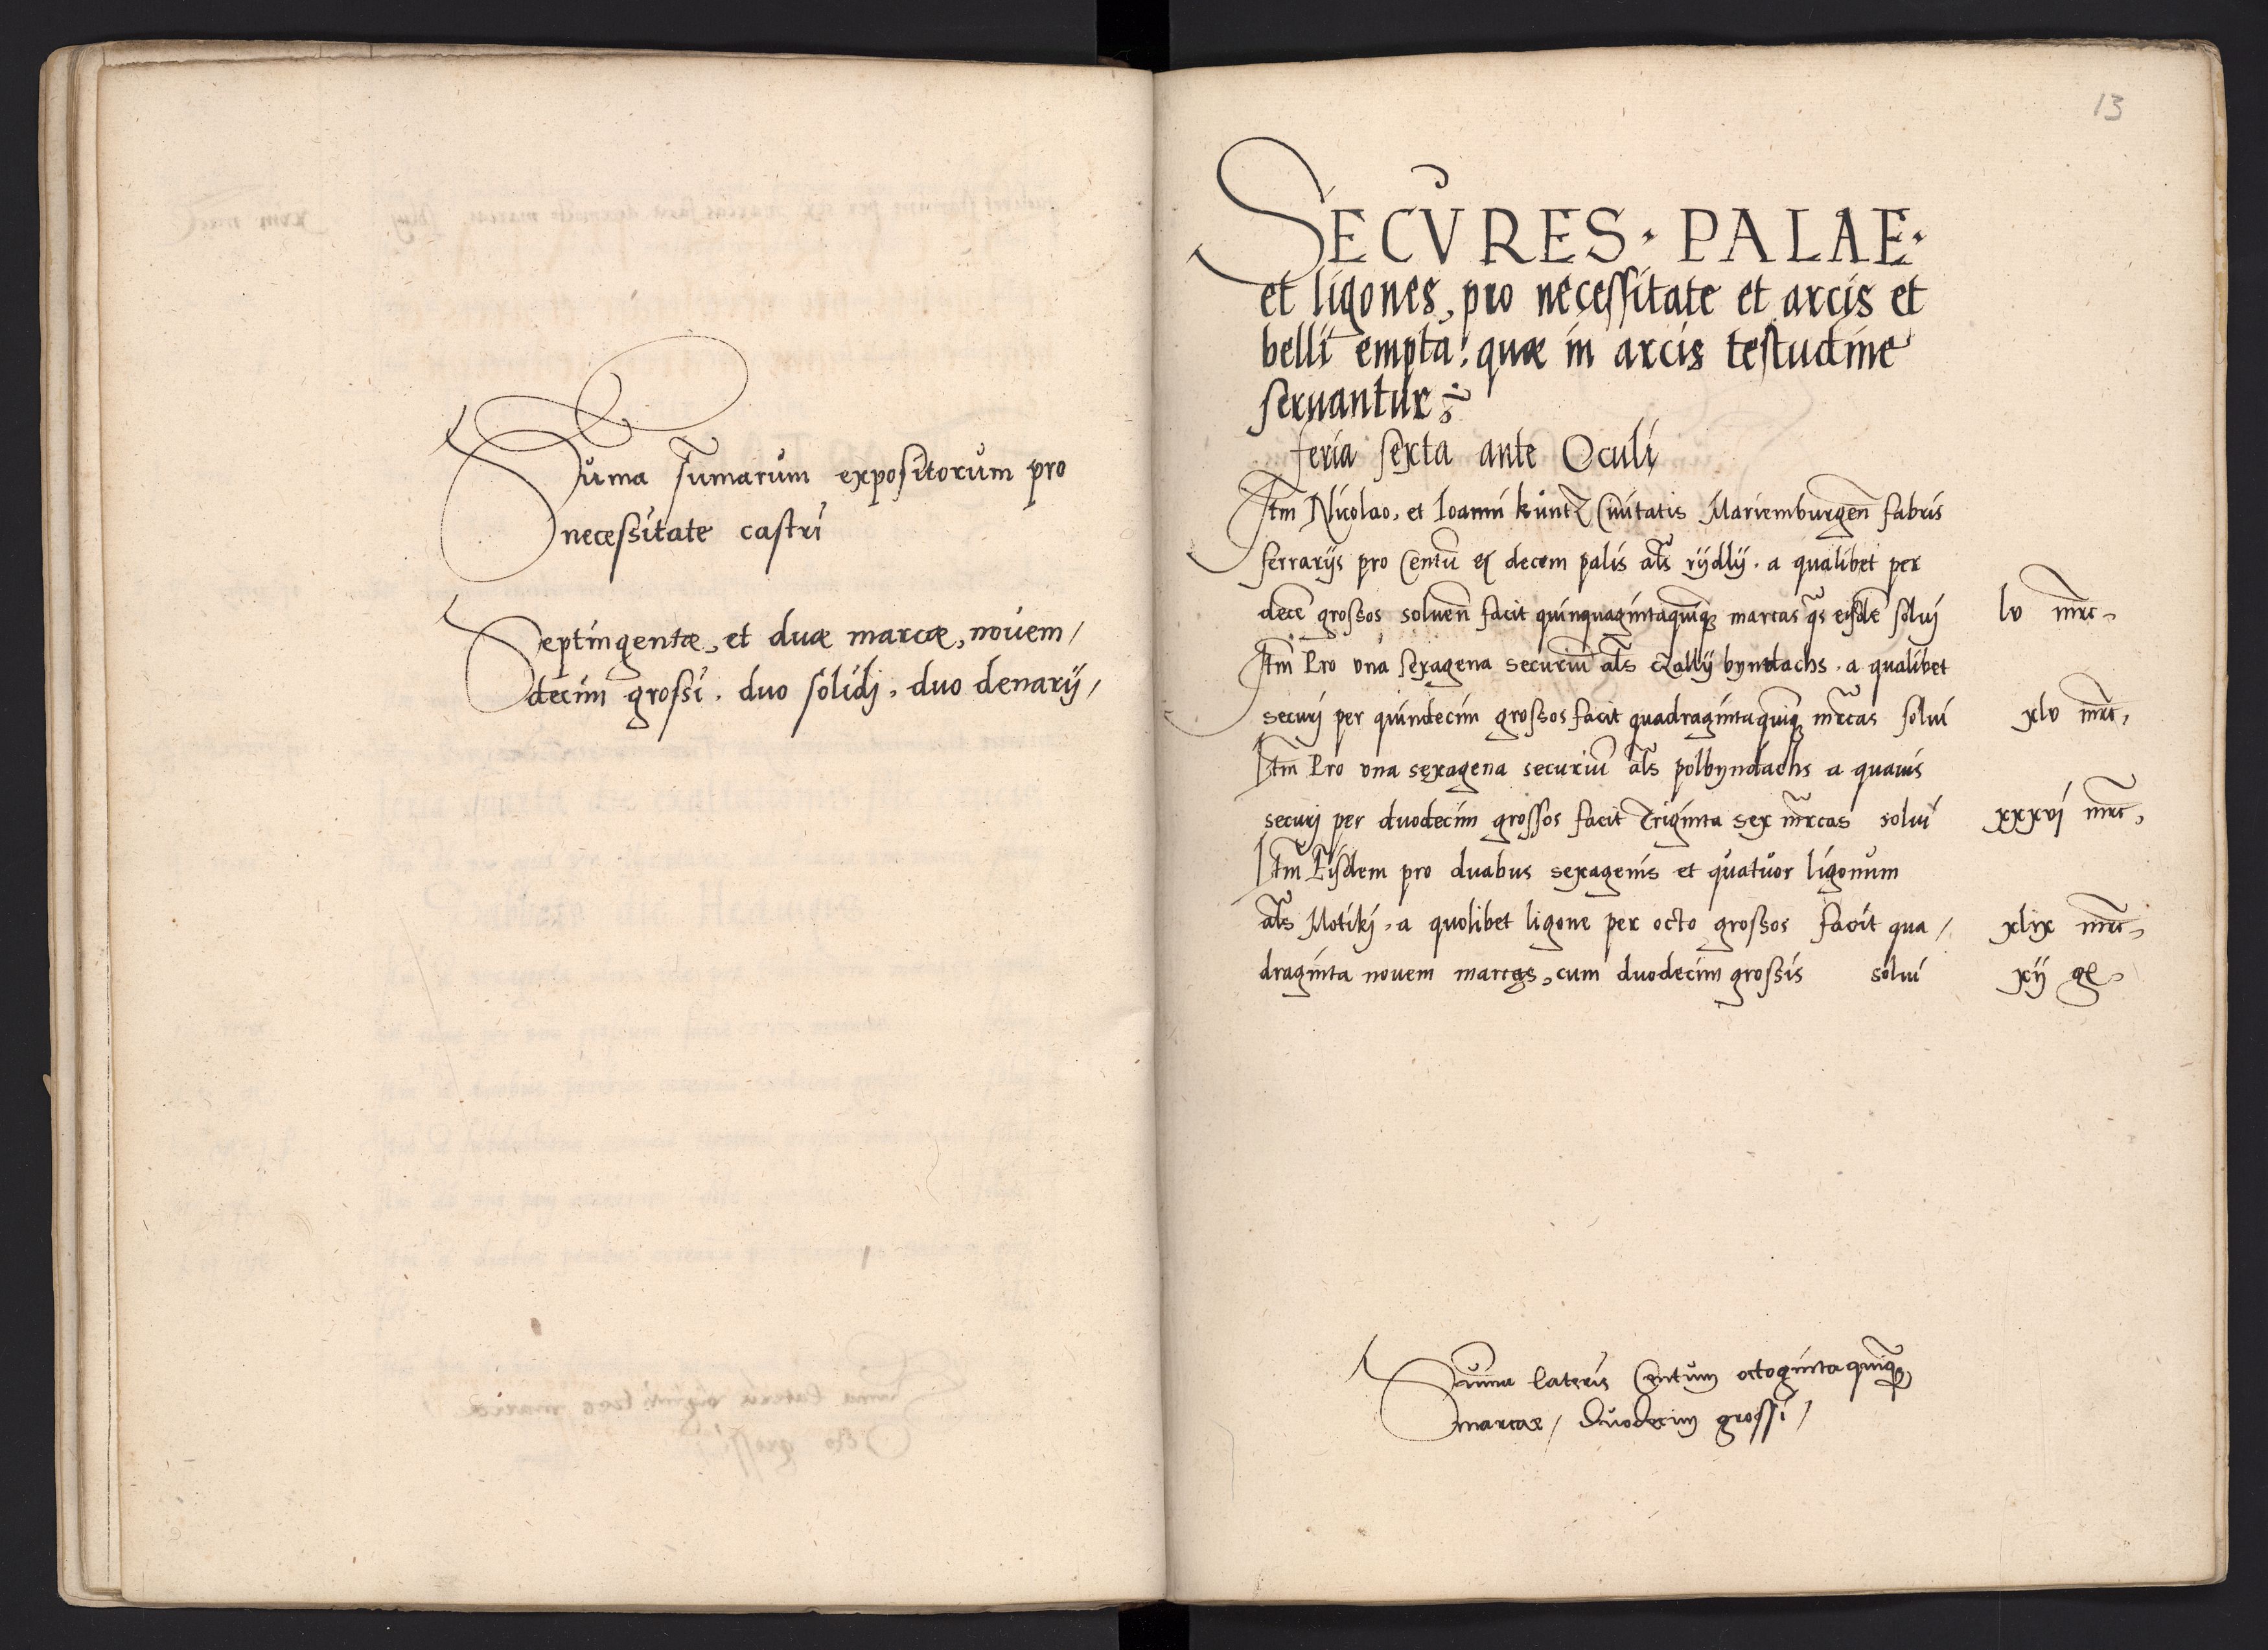 Suma sumarum expositorum pro
necessitate castri
Septingentæ, et duæ marcæ, novem/
decim grossi. duo solidj, duo denarij/
13
SECVRES · PALAE ·
et ligones, pro necessitate et arcis et
belli empta: quæ in arcis testudine
seruantur
feria sexta ante Oculi
Itm Nicolao, et Ioanni kuntz Ciuitatis Mariemburgen fabris
ferrarijs pro Centu et decem palis als rijdlij. a qualibet per
dece grossos soluen facit quinquagintaquinq marcas qs eisde solui lv mrc
Itm Pro vna sexagena securiu als byndachs. a qualibet
securj per quindecim grossos facit quadragintaquinq mrcas solui xlv mrc,
Itm Pro vna sexagena securiu als polbyndachs a quauis
securj per duodecim grossos facit Triginta sex mrcas solui xxxvi mrc,
Itm Eisdem pro duabus sexagenis et quatuor ligonum
als Motikj. a quolibet ligone per octo grossos facit qua/ xlix mrc
draginta novem marcas, cum duodecim grossis solui xij gr
Suma lateris Centum octogintaquinq
marcae/ Duodecim grossi/